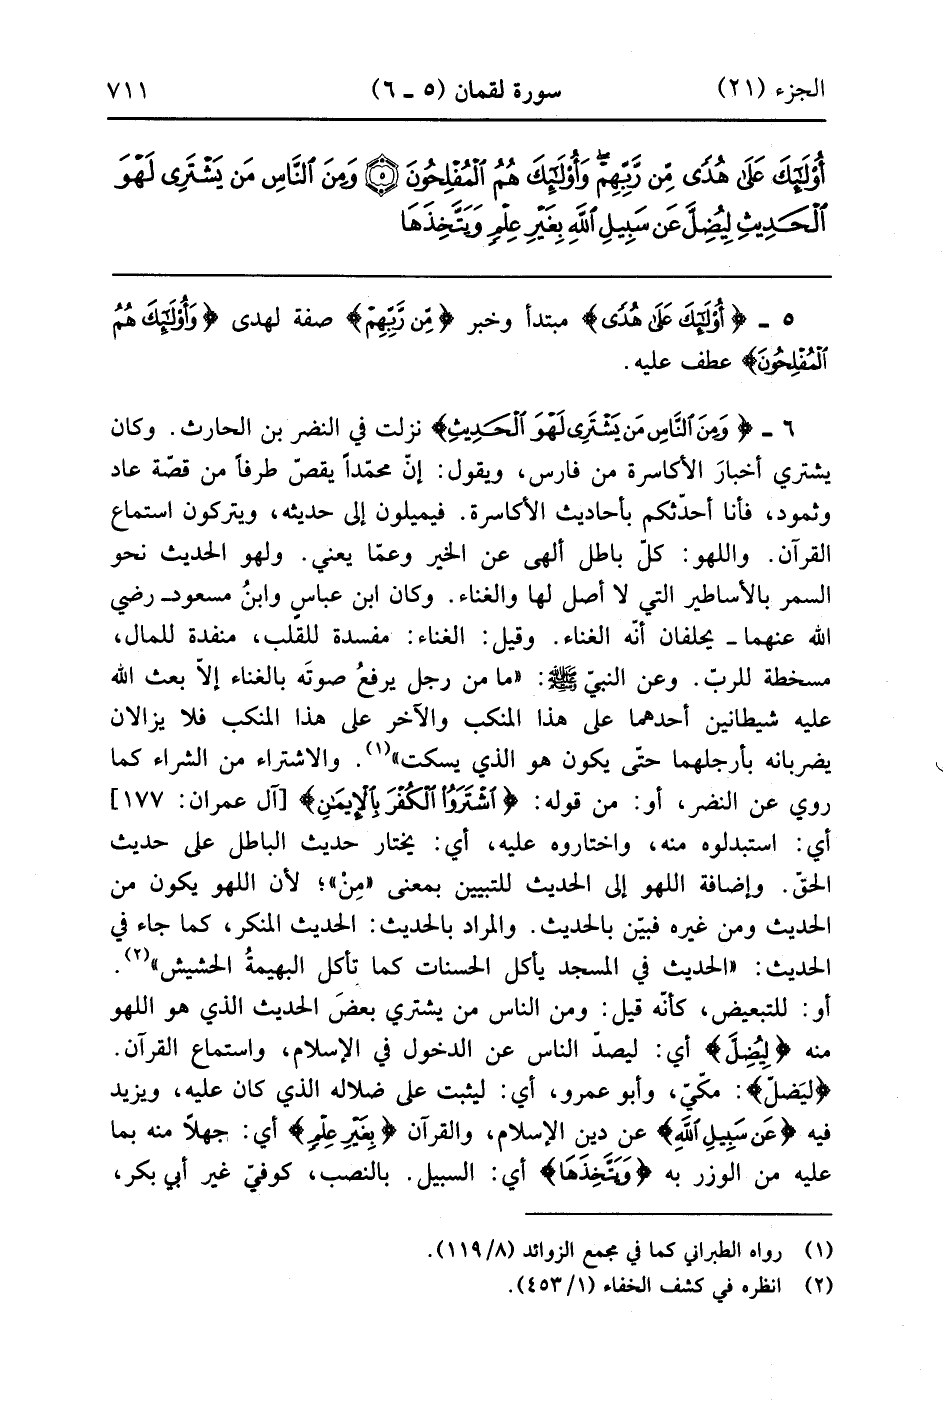 الجزء (٢١) سورة لقمان (٥ ـ ٦) ٧١١
أُوْلَٰٓئِكَ عَلَىٰ هُدًى مِّن رَّبِّهِمْۖ وَأُوْلَٰٓئِكَ هُمُ ٱلْمُفْلِحُونَ ۝٥ وَمِنَ ٱلنَّاسِ مَن يَشْتَرِى لَهْوَ
ٱلْحَدِيثِ لِيُضِلَّ عَن سَبِيلِ ٱللَّهِ بِغَيْرِ عِلْمٍ وَيَتَّخِذَهَا
٥ ـ ﴿أُوْلَٰٓئِكَ عَلَىٰ هُدًى﴾ مبتدأ وخبر ﴿مِّن رَّبِّهِمْ﴾ صفة لهدى ﴿وَأُوْلَٰٓئِكَ هُمُ
ٱلْمُفْلِحُونَ﴾ عطف عليه.
٦ ـ ﴿وَمِنَ ٱلنَّاسِ مَن يَشْتَرِى لَهْوَ ٱلْحَدِيثِ﴾ نزلت في النضر بن الحارث. وكان
يشتري أخبارَ الأكاسرة من فارس، ويقول: إنّ محمّداً يقصّ طرفاً من قصّة عاد
وثمود، فأنا أحدّثكم بأحاديث الأكاسرة. فيميلون إلى حديثه، ويتركون استماع
القرآن. واللهو: كلّ باطل ألهى عن الخير وعمّا يعني. ولهو الحديث نحو
السمر بالأساطير التي لا أصل لها والغناء. وكان ابن عباسٍ وابنُ مسعود ـ رضي
الله عنهما ـ يحلفان أنّه الغناء. وقيل: الغناء: مفسدة للقلب، منفدة للمال،
مسخطة للربّ. وعن النبيّ ﷺ: «ما من رجل يرفعُ صوتَه بالغناء إلاّ بعث الله
عليه شيطانين أحدهما على هذا المنكب والآخر على هذا المنكب فلا يزالان
يضربانه بأرجلهما حتّى يكون هو الذي يسكت»(١). والاشتراء من الشراء كما
روي عن النضر، أو: من قوله: ﴿ٱشْتَرَوُا۟ ٱلْكُفْرَ بِٱلْإِيمَٰنِ﴾ [آل عمران: ١٧٧]
أي: استبدلوه منه، واختاروه عليه، أي: يختار حديث الباطل على حديث
الحقّ. وإضافة اللهو إلى الحديث للتبيين بمعنى «مِنْ»؛ لأن اللهو يكون من
الحديث ومن غيره فبيّن بالحديث. والمراد بالحديث: الحديث المنكر، كما جاء في
الحديث: «الحديث في المسجد يأكل الحسنات كما تأكل البهيمةُ الحشيش»(٢).
أو: للتبعيض، كأنّه قيل: ومن الناس من يشتري بعضَ الحديث الذي هو اللهو
منه ﴿لِيُضِلَّ﴾ أي: ليصدّ الناس عن الدخول في الإسلام، واستماع القرآن.
﴿لِيَضلّ﴾: مكّيّ، وأبو عمرو، أي: ليثبت على ضلاله الذي كان عليه، ويزيد
فيه ﴿عَن سَبِيلِ ٱللَّهِ﴾ عن دين الإسلام، والقرآن ﴿بِغَيْرِ عِلْمٍ﴾ أي: جهلاً منه بما
عليه من الوزر به ﴿وَيَتَّخِذَهَا﴾ أي: السبيل. بالنصب، كوفيّ غير أبي بكر،
(١) رواه الطبراني كما في مجمع الزوائد (٨/١١٩).
(٢) انظره في كشف الخفاء (١/٤٥٣).